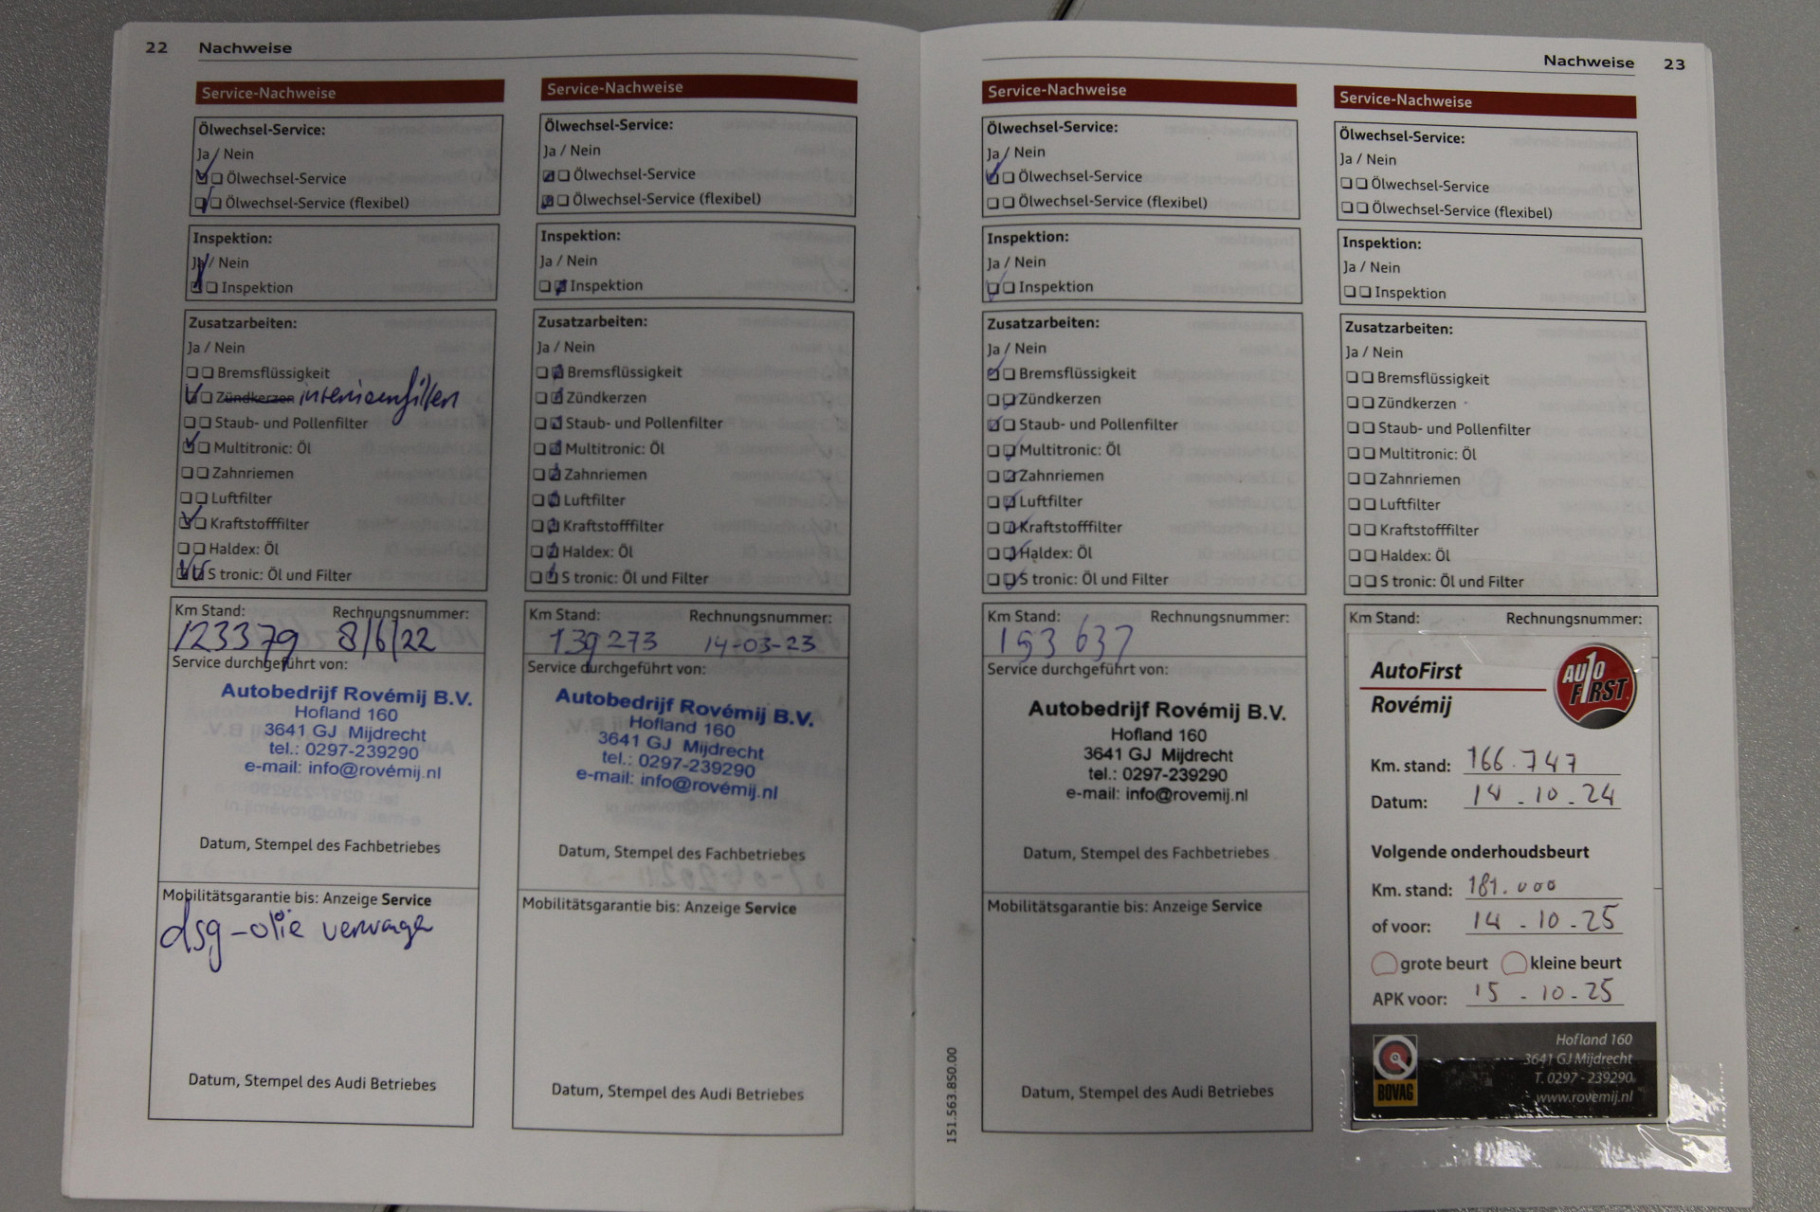 22 Nachweise
Service-Nachweise
Ölwechsel-Service:
Ja / Nein
Ölwechsel-Service
Ölwechsel-Service (flexibel)
Inspektion:
Ja / Nein
Inspektion
Zusatzarbeiten:
Ja / Nein
Bremsflüssigkeit
Zündkerzen
Staub- und Pollenfilter
Multitronic: Öl
Zahnriemen
Luftfilter
Kraftstofffilter
Haldex: Öl
S tronic: Öl und Filter
Km Stand: Rechnungsnummer:
123379 8/6/22
Service durchgeführt von:
Autobedrijf Rovémij B.V.
Hofland 160
3641 GJ Mijdrecht
tel.: 0297-239290
e-mail: info@rovémij.nl
Datum, Stempel des Fachbetriebes
Mobilitätsgarantie bis: Anzeige Service
dsg-olie
Datum, Stempel des Audi Betriebes
Service-Nachweise
Ölwechsel-Service:
Ja / Nein
Ölwechsel-Service
Ölwechsel-Service (flexibel)
Inspektion:
Ja / Nein
Inspektion
Zusatzarbeiten:
Ja / Nein
Bremsflüssigkeit
Zündkerzen
Staub- und Pollenfilter
Multitronic: Öl
Zahnriemen
Luftfilter
Kraftstofffilter
Haldex: Öl
S tronic: Öl und Filter
Km Stand: Rechnungsnummer:
139273 14-03-23
Service durchgeführt von:
Autobedrijf Rovémij B.V.
Hofland 160
3641 GJ Mijdrecht
tel.: 0297-239290
e-mail: info@rovémij.nl
Datum, Stempel des Fachbetriebes
Mobilitätsgarantie bis: Anzeige Service
Datum, Stempel des Audi Betriebes
Nachweise 23
Service-Nachweise
Ölwechsel-Service:
Ja / Nein
Ölwechsel-Service
Ölwechsel-Service (flexibel)
Inspektion:
Ja / Nein
Inspektion
Zusatzarbeiten:
Ja / Nein
Bremsflüssigkeit
Zündkerzen
Staub- und Pollenfilter
Multitronic: Öl
Zahnriemen
Luftfilter
Kraftstofffilter
Haldex: Öl
S tronic: Öl und Filter
Km Stand: Rechnungsnummer:
153 637
Service durchgeführt von:
Autobedrijf Rovémij B.V.
Hofland 160
3641 GJ Mijdrecht
tel.: 0297-239290
e-mail: info@rovemij.nl
Datum, Stempel des Fachbetriebes
Mobilitätsgarantie bis: Anzeige Service
Datum, Stempel des Audi Betriebes
151.563.850.00
Service-Nachweise
Ölwechsel-Service:
Ja / Nein
Ölwechsel-Service
Ölwechsel-Service (flexibel)
Inspektion:
Ja / Nein
Inspektion
Zusatzarbeiten:
Ja / Nein
Bremsflüssigkeit
Zündkerzen
Staub- und Pollenfilter
Multitronic: Öl
Zahnriemen
Luftfilter
Kraftstofffilter
Haldex: Öl
S tronic: Öl und Filter
Km Stand: Rechnungsnummer:
AutoFirst
Rovémij
AUTO
FIRST
Km. stand: 166.747
Datum: 14-10-24
Volgende onderhoudsbeurt
Km. stand: 181.000
of voor: 14-10-25
grote beurt kleine beurt
APK voor: 15-10-25
BOVAG
Hofland 160
3641 GJ Mijdrecht
T. 0297-239290
www.rovemij.nl